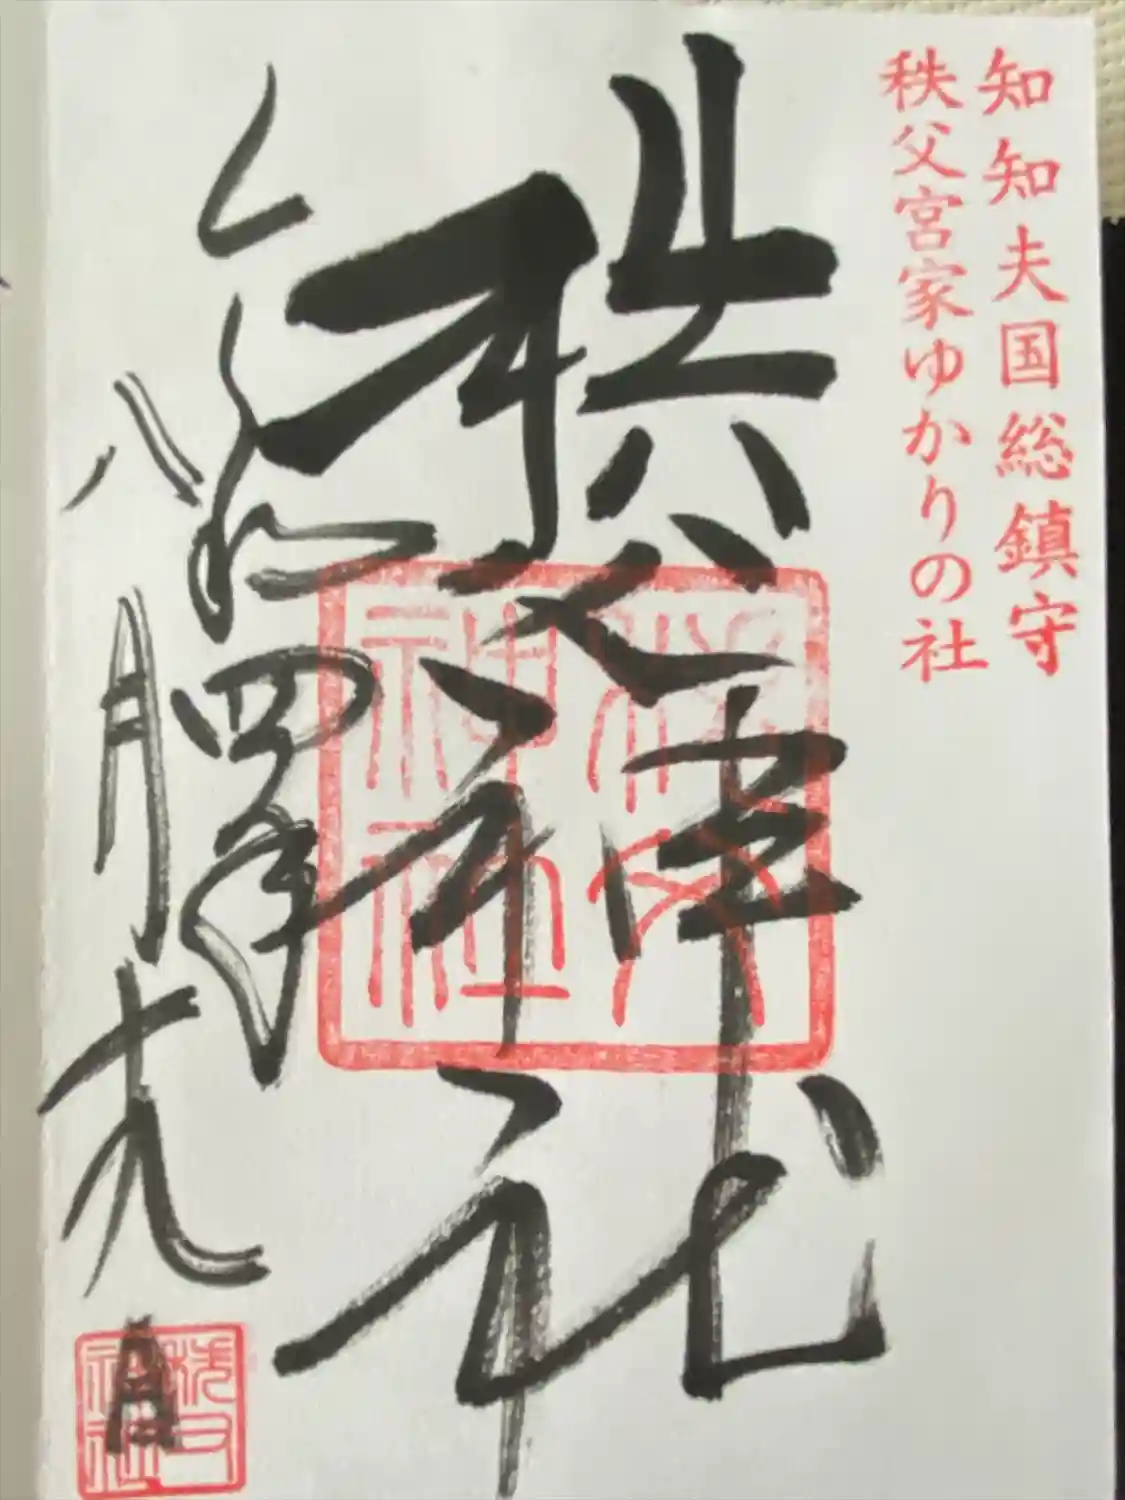 知知夫国総鎮守
秩父宮家ゆかりの社
秩父神社
令和四年
八月
秩父神社